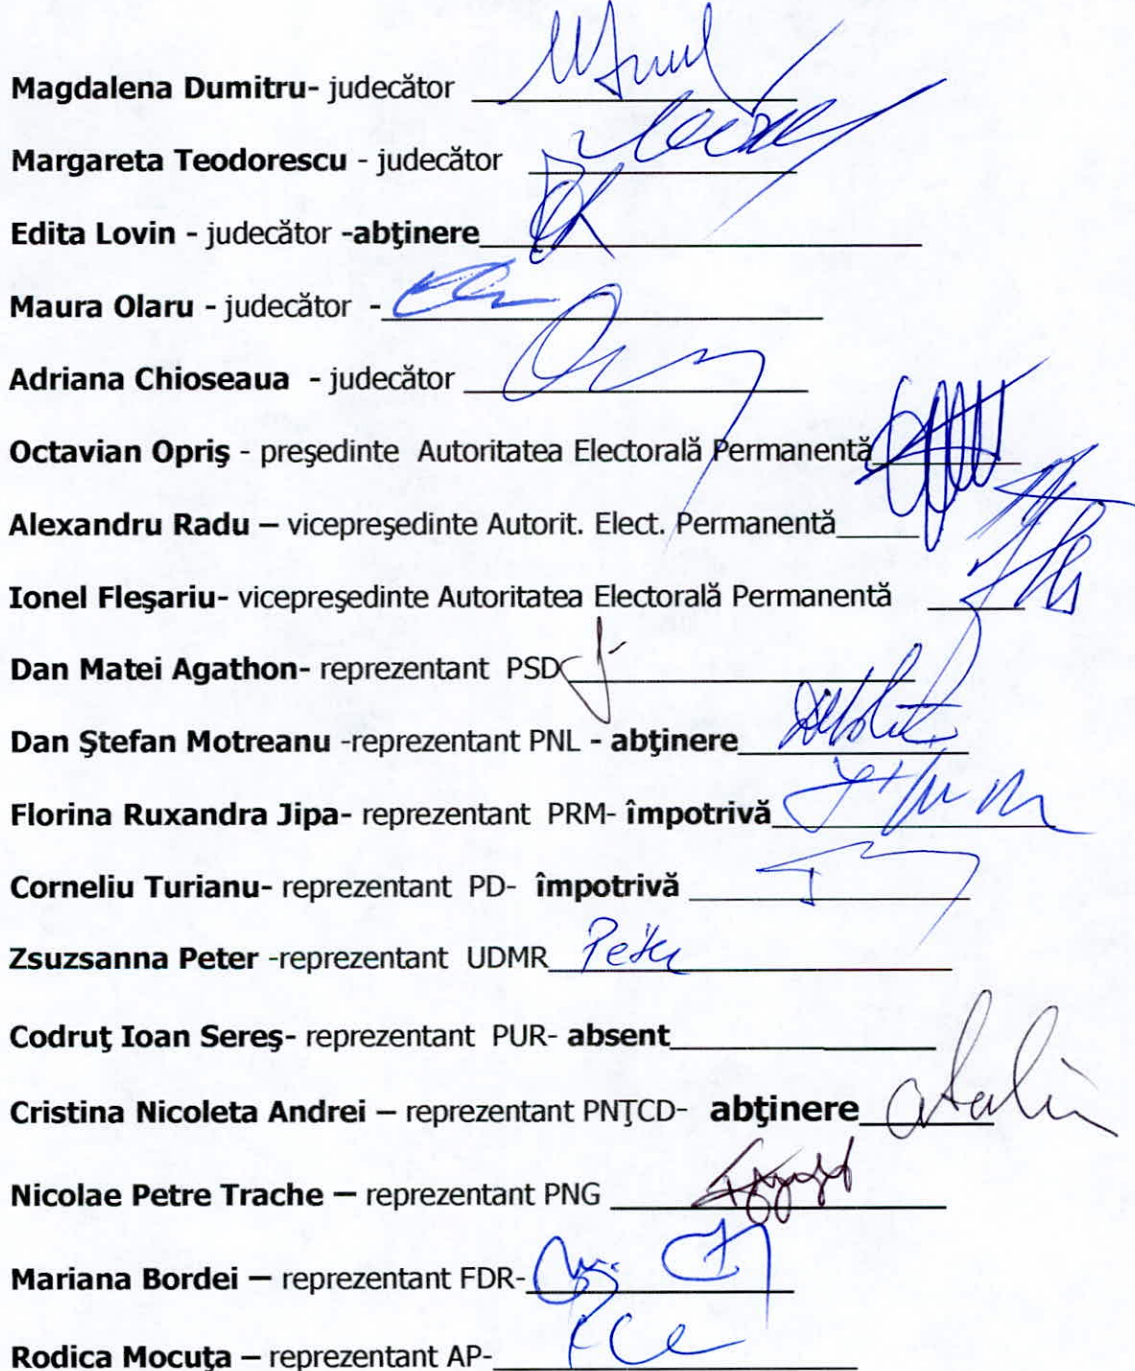 Magdalena Dumitru- judecător
Margareta Teodorescu - judecător
Edita Lovin - judecător -abţinere
Maura Olaru - judecător -
Adriana Chioseaua - judecător
Octavian Opriş - preşedinte Autoritatea Electorală Permanentă
Alexandru Radu – vicepreşedinte Autorit. Elect. Permanentă
Ionel Fleşariu- vicepreşedinte Autoritatea Electorală Permanentă
Dan Matei Agathon- reprezentant PSD
Dan Ştefan Motreanu -reprezentant PNL - abţinere
Florina Ruxandra Jipa- reprezentant PRM- împotrivă
Corneliu Turianu- reprezentant PD- împotrivă
Zsuzsanna Peter -reprezentant UDMR Peter
Codruţ Ioan Sereş- reprezentant PUR- absent
Cristina Nicoleta Andrei – reprezentant PNŢCD- abţinere
Nicolae Petre Trache – reprezentant PNG
Mariana Bordei – reprezentant FDR-
Rodica Mocuţa – reprezentant AP-